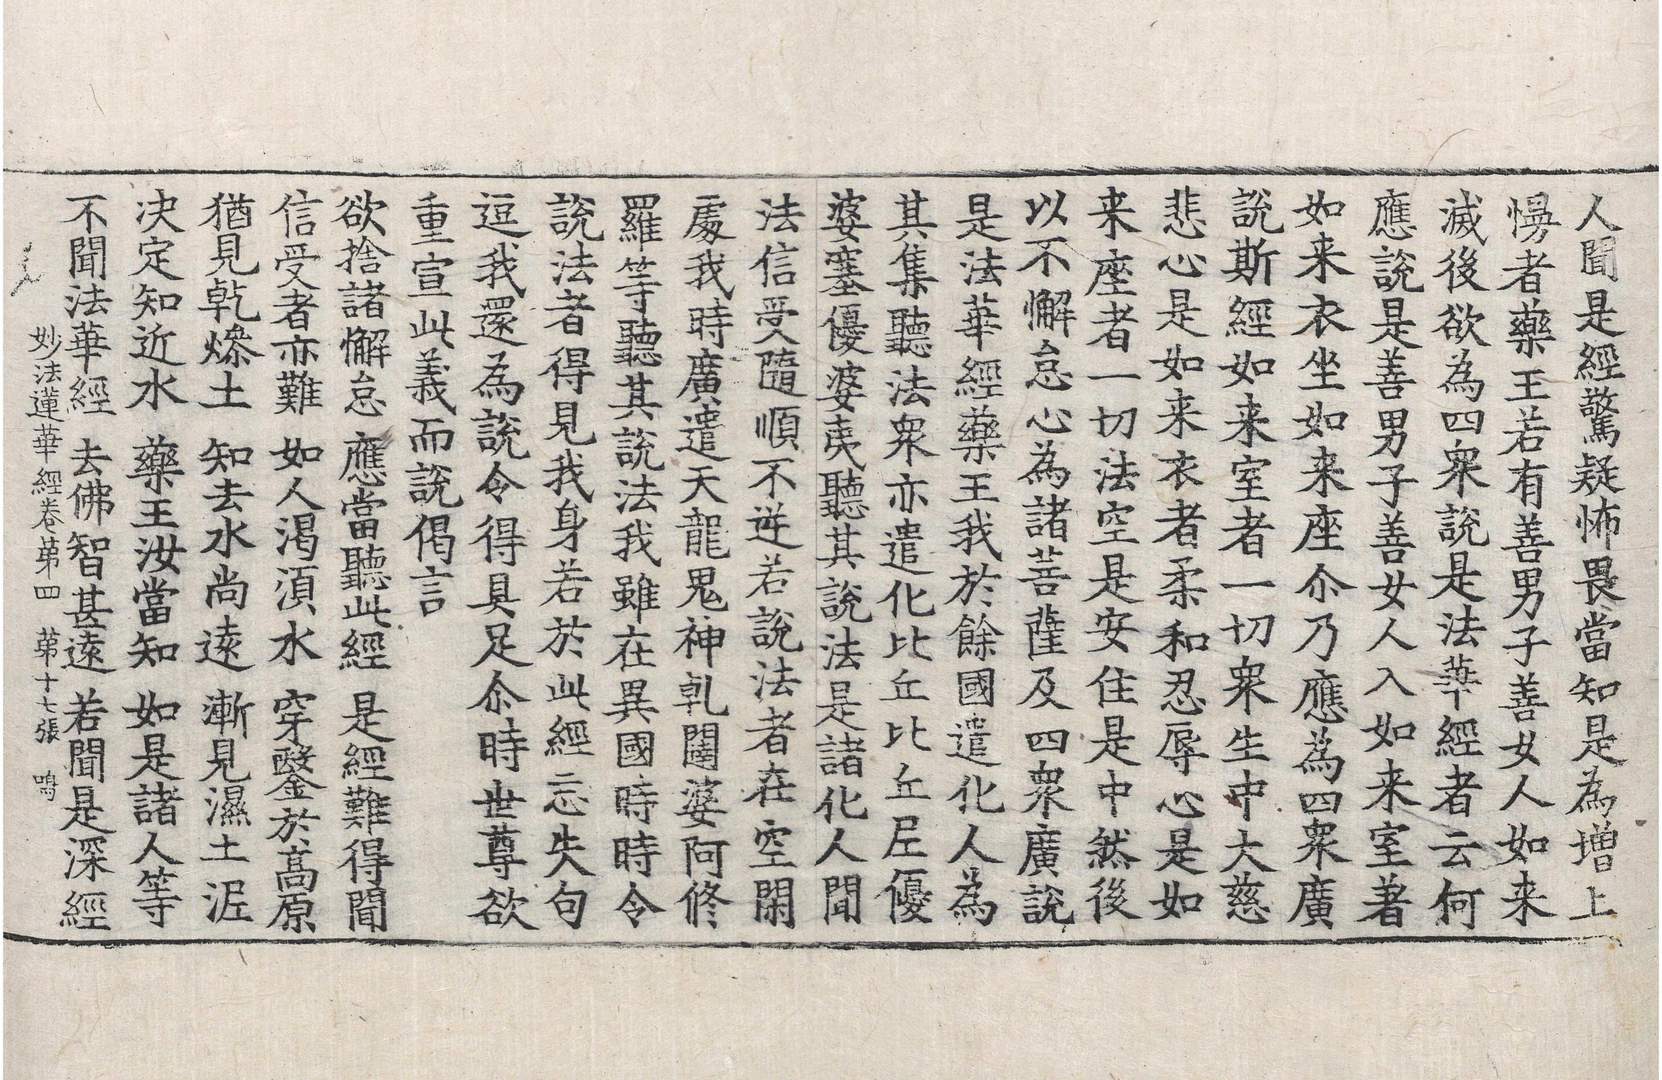 人聞是經驚疑怖畏當知是為增上
慢者藥王若有善男子善女人如来
滅後欲為四衆說是法華經者云何
應說是善男子善女人入如来室著
如来衣坐如来座尒乃應為四衆廣
說斯經如来室者一切衆生中大慈
悲心是如来衣者柔和忍辱心是如
来座者一切法空是安住是中然後
以不懈怠心為諸菩薩及四衆廣說
是法華經藥王我於餘國遣化人為
其集聽法衆亦遣化比丘比丘尼優
婆塞優婆夷聽其說法是諸化人聞
法信受隨順不逆若說法者在空閑
處我時廣遣天龍鬼神乹闥婆阿修
羅等聽其說法我雖在異國時時令
說法者得見我身若於此經忘失句
逗我還為說令得具足尒時世尊欲
重宣此義而說偈言
欲捨諸懈怠 應當聽此經 是經難得聞
信受者亦難 如人渴湏水 穿鑿於髙原
猶見乹燥土 知去水尚遠 漸見濕土泥
决定知近水 藥王汝當知 如是諸人等
不聞法華經 去佛智甚遠 若聞是深經
妙法蓮華經卷第四 第十七張 鳴